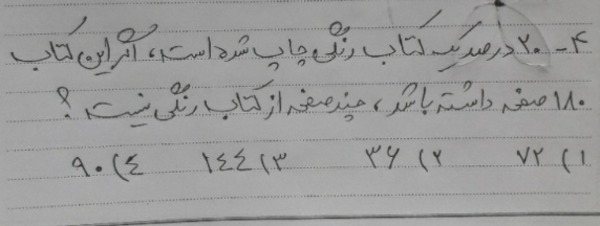 ۴- ۲۰ درصد یک کتاب رنگی چاپ شده است، اگر این کتاب
۱۸۰ صفحه داشته باشد، چند صفحه از کتاب رنگی نیست؟
۱) ۷۲ ۲) ۳۶ ۳) ۱۴۴ ۴) ۹۰